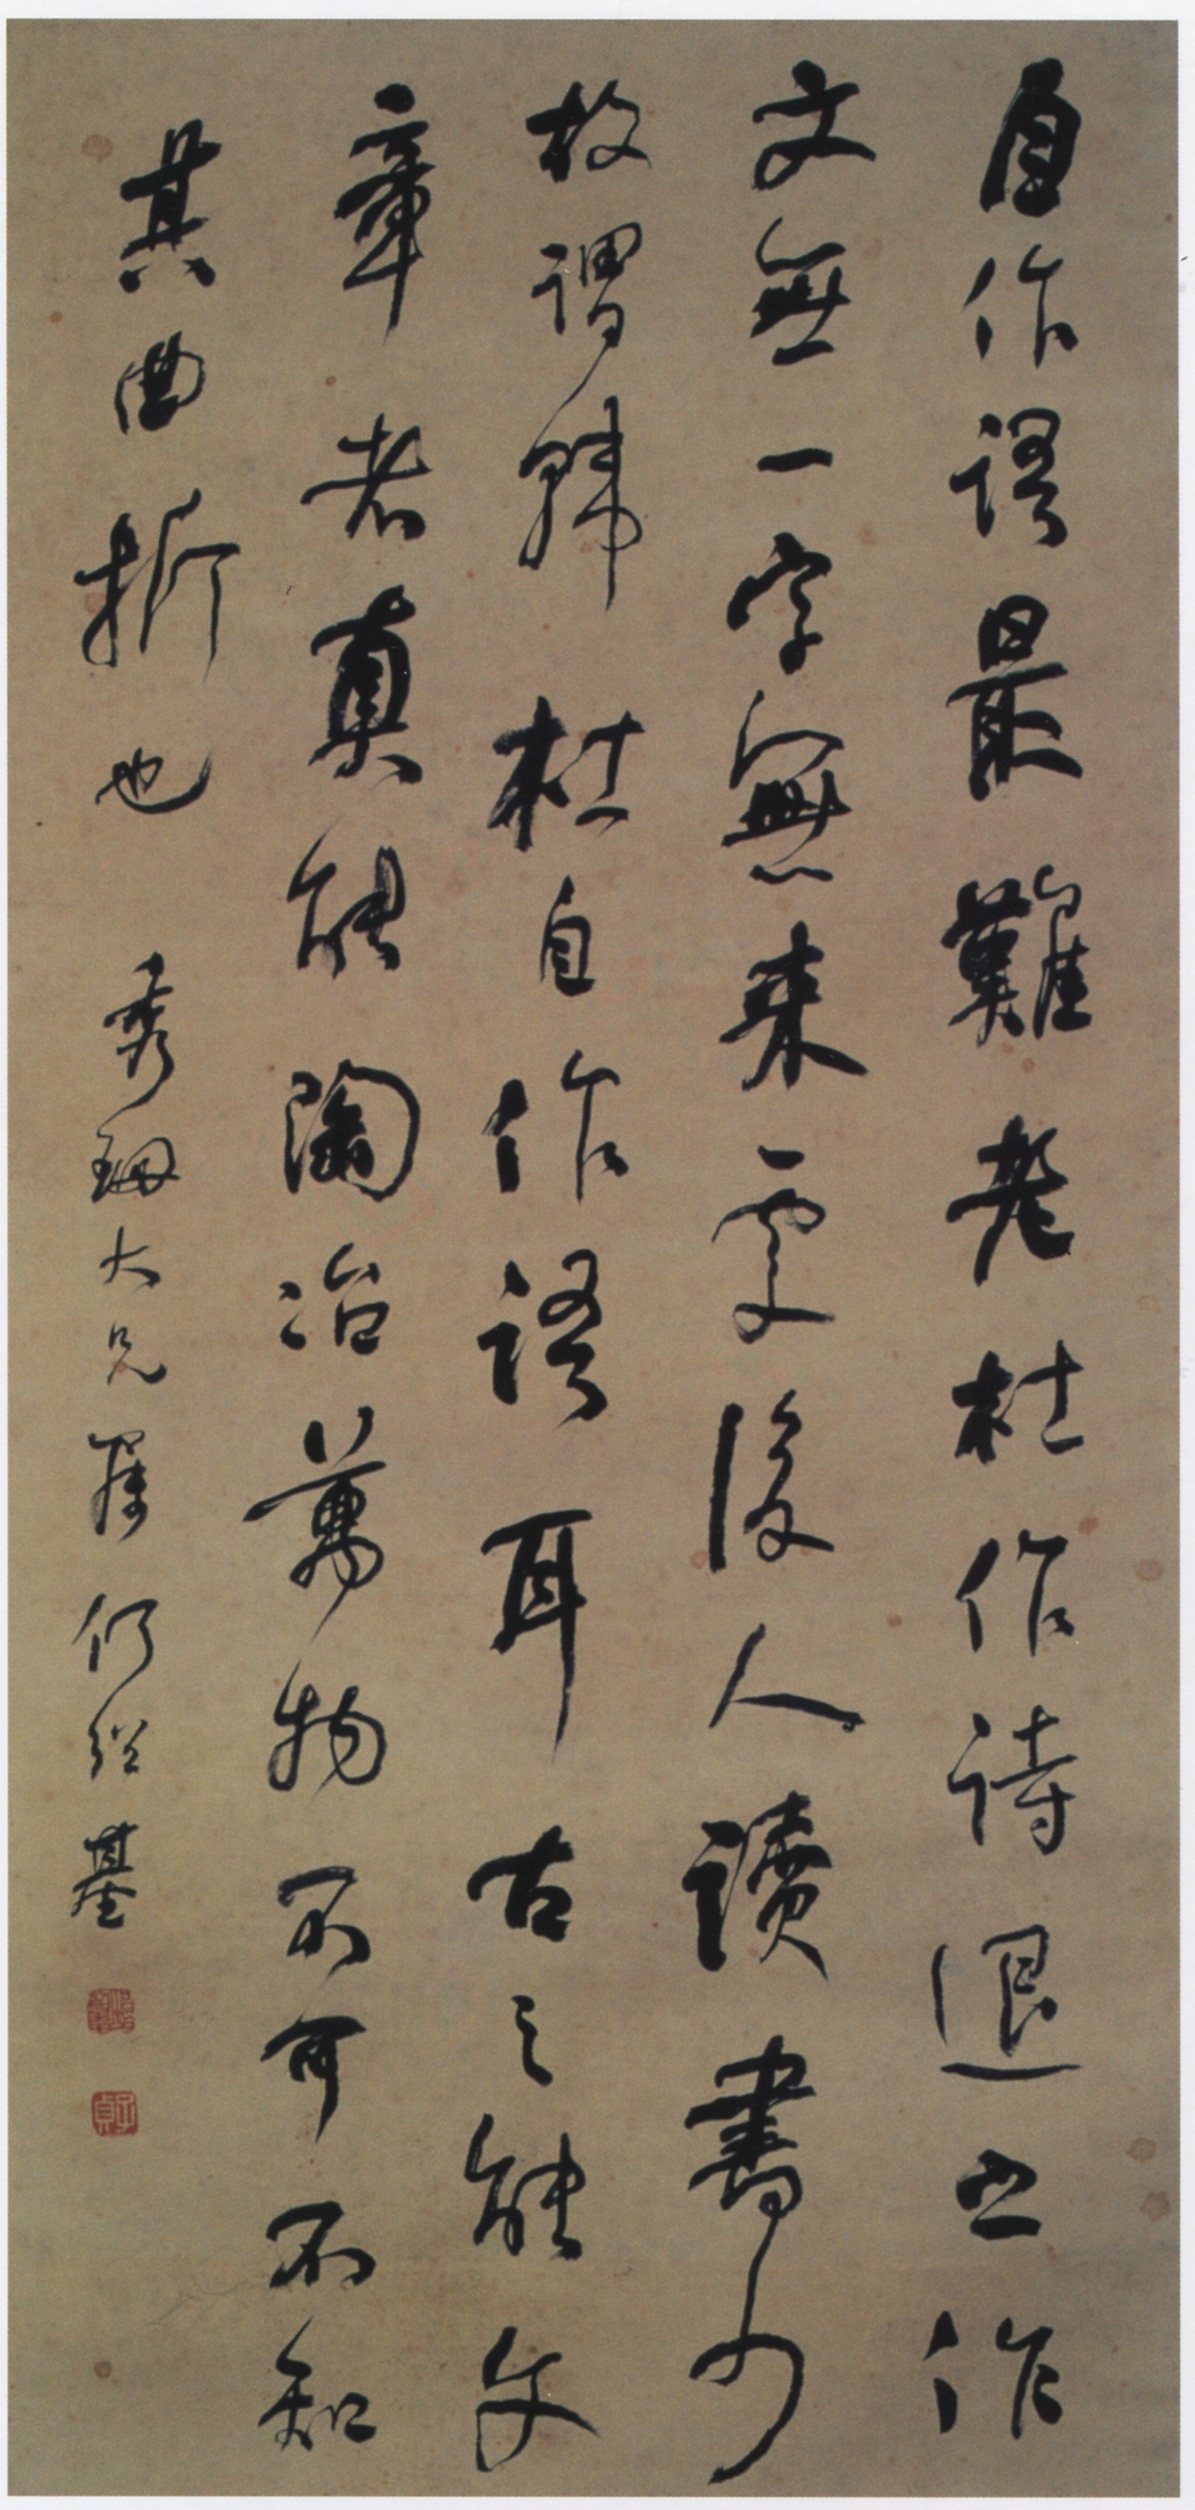 自作語最難老杜作詩退之作
文無一字無来處後人讀書少
故謂韓杜自作語耳古之能文
章者真能陶冶萬物不可不知
其曲折也
秀 大兄 何紹基
子貞